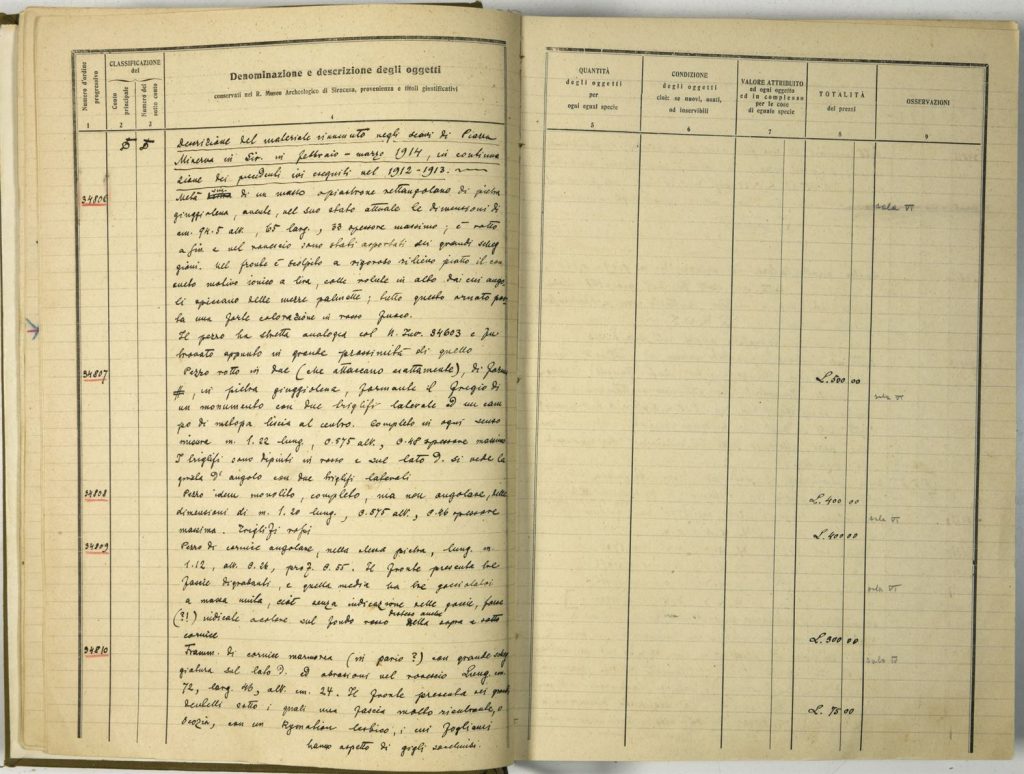 Numero d'ordine progressivo
CLASSIFICAZIONE
del
Conto principale
Numero del sotto conto
Denominazione e descrizione degli oggetti
conservati nel R. Museo Archeologico di Siracusa, provenienza e titoli giustificativi
1 2 3 4
Descrizione del materiale rinvenuto negli scavi di Piazza
Minerva in Sir. in febbraio - marzo 1914, in continua
zione dei precedenti ivi eseguiti nel 1912-1913.
34806
Metà di un masso o piastrone rettangolare di pietra
giuggiolena, avente, nel suo stato attuale le dimensioni di
cm. 94.5 alt., 65 larg., 33 spessore massimo; è rotto
a fin e nel rovescio sono stati asportati dei grandi scheg
gioni. Nel fronte è scolpito a rigoroso rilievo piatto il con
sueto motivo ionico a lira, colle volute in alto dai cui ango
li spiccano delle mezze palmette; tutto questo ornato por
ta una forte colorazione in rosso fuoco.
Il pezzo ha stretta analogia col N. Inv. 34603 e fu
trovato appunto in grande prossimità di quello
34807
Pezzo rotto in due (che attaccano esattamente), di forma
, in pietra giuggiolena, formante il fregio di
un monumento con due triglifi laterale ed un cam
po di metopa liscia al centro. Completo in ogni senso
misura m. 1.22 lung., 0.575 alt., 0.48 spessore massimo
I triglifi sono dipinti in rosso e sul lato d. si vede la
d'angolo con due triglifi laterali
34808
Pezzo idem monolito, completo, ma non angolare, delle
dimensioni di m. 1.20 lung., 0.575 alt., 0.46 spessore
massima. Triglifi rossi
34809
Pezzo di cornice angolare, nella stessa pietra, lung. m.
1.12, alt. 0.26, prof. 0.55. Il fronte presenta tre
fascie digradanti, e quella media ha tre gocciolatoi
a massa unita, cioè senza indicazione delle goccie, forse
(?!) indicate a colore sul fondo rosso della sopra e sotto
cornice
34810
Framm. di cornice marmorea (in pario?) con grande scheg
giatura sul lato d. ed abrasioni nel rovescio Lung. cm.
72, larg. 46, alt. cm. 24. Il fronte presenta sei grandi
dentelli sotto i quali una fascia molto rientrante, o
scozia, con un Kymation lesbico, i cui fogliami
hanno aspetto di gigli
QUANTITÀ
degli oggetti
per
ogni egual specie
5
CONDIZIONE
degli oggetti
cioè: se nuovi, usati,
od inservibili
6
VALORE ATTRIBUITO
ad ogni oggetto
ed in complesso
per le cose
di eguale specie
7
TOTALITÀ
dei prezzi
8
OSSERVAZIONI
9
sala VI
L. 500 00
sala VI
L. 400 00
sala VI
L. 400 00
sala VI
L. 300 00
sala VI
L. 75 00